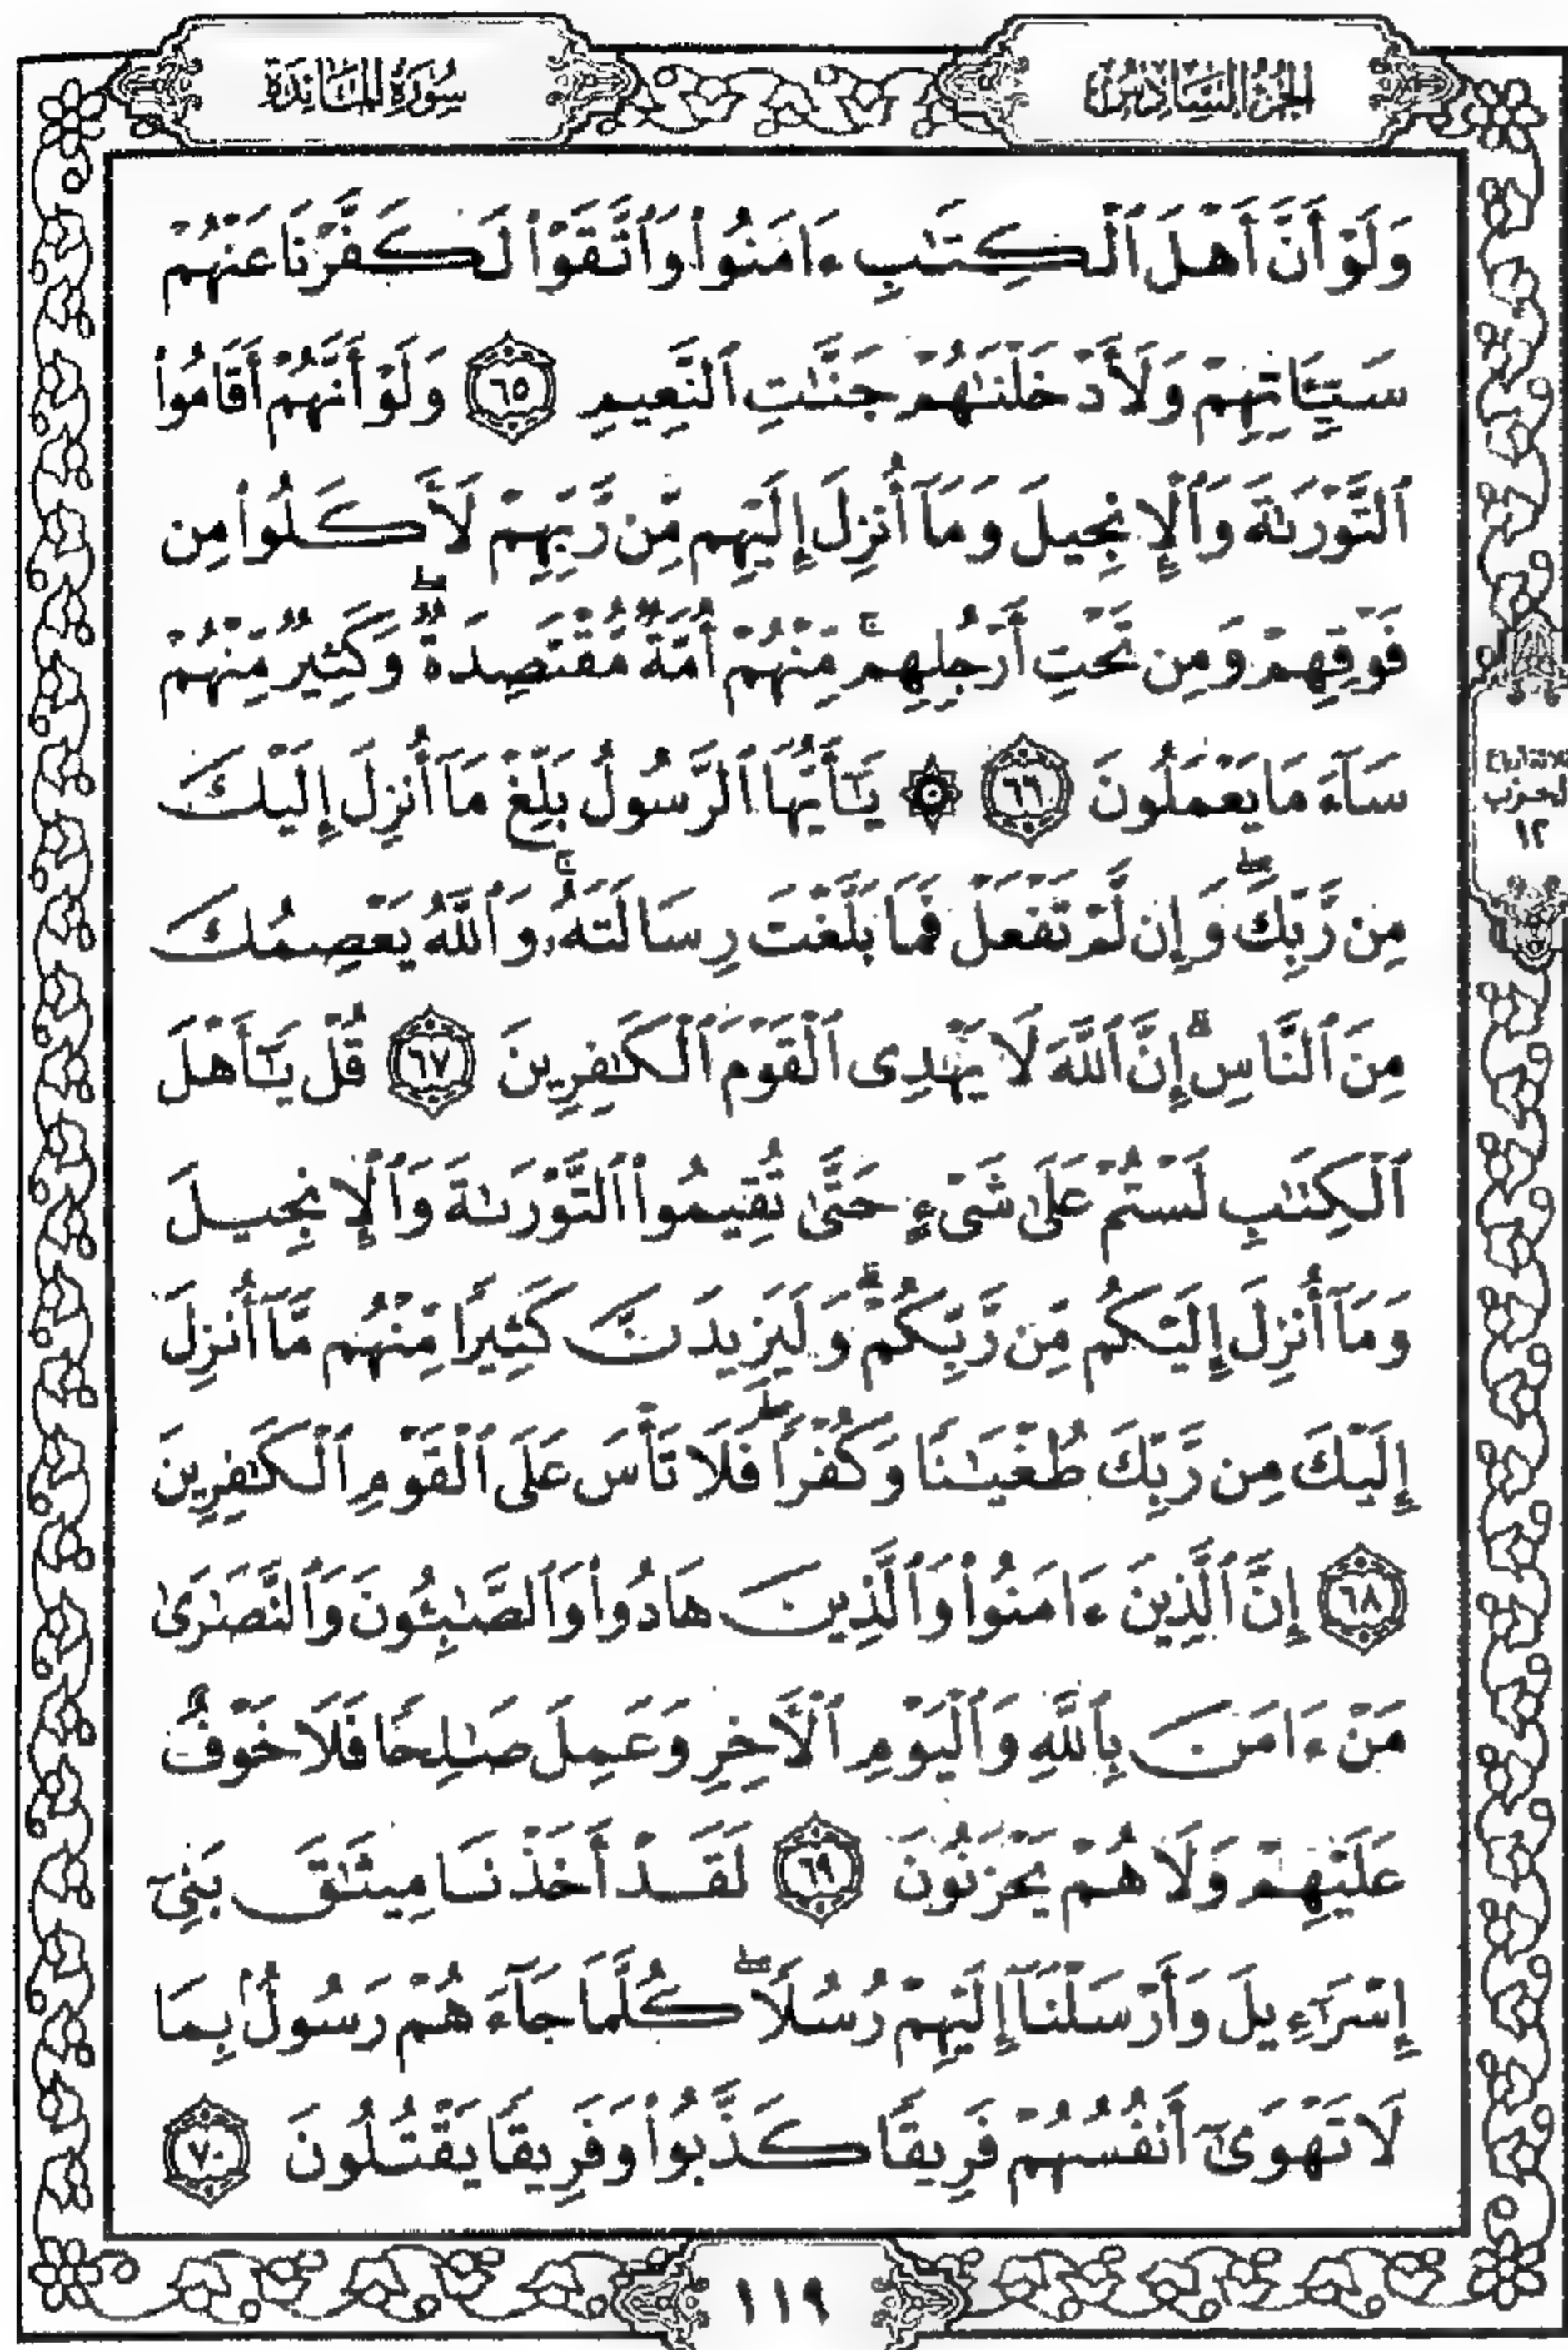 الجزء السادس
سورة المائدة
وَلَوْ أَنَّ أَهْلَ ٱلْكِتَٰبِ ءَامَنُوا۟ وَٱتَّقَوْا۟ لَكَفَّرْنَا عَنْهُمْ
سَيِّـَٔاتِهِمْ وَلَأَدْخَلْنَٰهُمْ جَنَّٰتِ ٱلنَّعِيمِ ٦٥ وَلَوْ أَنَّهُمْ أَقَامُوا۟
ٱلتَّوْرَىٰةَ وَٱلْإِنجِيلَ وَمَآ أُنزِلَ إِلَيْهِم مِّن رَّبِّهِمْ لَأَكَلُوا۟ مِن
فَوْقِهِمْ وَمِن تَحْتِ أَرْجُلِهِم ۚ مِّنْهُمْ أُمَّةٌ مُّقْتَصِدَةٌ ۖ وَكَثِيرٌ مِّنْهُمْ
سَآءَ مَا يَعْمَلُونَ ٦٦ ۞ يَٰٓأَيُّهَا ٱلرَّسُولُ بَلِّغْ مَآ أُنزِلَ إِلَيْكَ
الحزب
١٢
مِن رَّبِّكَ ۖ وَإِن لَّمْ تَفْعَلْ فَمَا بَلَّغْتَ رِسَالَتَهُۥ ۚ وَٱللَّهُ يَعْصِمُكَ
مِنَ ٱلنَّاسِ ۗ إِنَّ ٱللَّهَ لَا يَهْدِى ٱلْقَوْمَ ٱلْكَٰفِرِينَ ٦٧ قُلْ يَٰٓأَهْلَ
ٱلْكِتَٰبِ لَسْتُمْ عَلَىٰ شَىْءٍ حَتَّىٰ تُقِيمُوا۟ ٱلتَّوْرَىٰةَ وَٱلْإِنجِيلَ
وَمَآ أُنزِلَ إِلَيْكُم مِّن رَّبِّكُمْ ۗ وَلَيَزِيدَنَّ كَثِيرًا مِّنْهُم مَّآ أُنزِلَ
إِلَيْكَ مِن رَّبِّكَ طُغْيَٰنًا وَكُفْرًا ۖ فَلَا تَأْسَ عَلَى ٱلْقَوْمِ ٱلْكَٰفِرِينَ
٦٨ إِنَّ ٱلَّذِينَ ءَامَنُوا۟ وَٱلَّذِينَ هَادُوا۟ وَٱلصَّٰبِـُٔونَ وَٱلنَّصَٰرَىٰ
مَنْ ءَامَنَ بِٱللَّهِ وَٱلْيَوْمِ ٱلْـَٔاخِرِ وَعَمِلَ صَٰلِحًا فَلَا خَوْفٌ
عَلَيْهِمْ وَلَا هُمْ يَحْزَنُونَ ٦٩ لَقَدْ أَخَذْنَا مِيثَٰقَ بَنِىٓ
إِسْرَٰٓءِيلَ وَأَرْسَلْنَآ إِلَيْهِمْ رُسُلًا ۖ كُلَّمَا جَآءَهُمْ رَسُولٌۢ بِمَا
لَا تَهْوَىٰٓ أَنفُسُهُمْ فَرِيقًا كَذَّبُوا۟ وَفَرِيقًا يَقْتُلُونَ ٧٠
١١٩